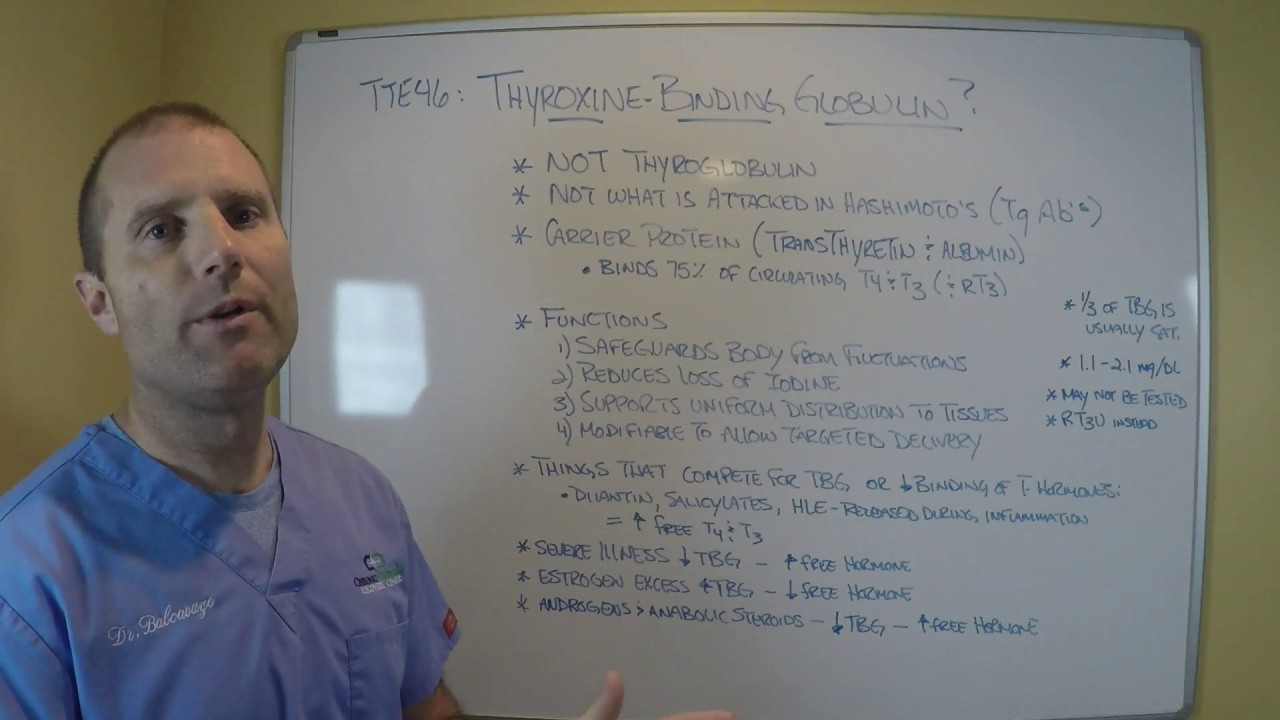 TTE46: THYROXINE-BINDING GLOBULIN?
* NOT THYROGLOBULIN
* NOT WHAT IS ATTACKED IN HASHIMOTO'S (Tg Ab's)
* CARRIER PROTEIN (TRANSTHYRETIN & ALBUMIN)
• BINDS 75% OF CIRCULATING T4 & T3 (& RT3)
* 1/3 OF TBG IS
USUALLY SAT.
* 1.1-2.1 mg/DL
* MAY NOT BE TESTED
* RT3U INSTEAD
* FUNCTIONS
1) SAFEGUARDS BODY FROM FLUCTUATIONS
2) REDUCES LOSS OF IODINE
3) SUPPORTS UNIFORM DISTRIBUTION TO TISSUES
4) MODIFIABLE TO ALLOW TARGETED DELIVERY
* THINGS THAT COMPETE FOR TBG OR ↓ BINDING OF T. HORMONES:
• DILANTIN, SALICYLATES, HLE-RELEASED DURING INFLAMMATION
= ↑ FREE T4 & T3
* SEVERE ILLNESS ↓ TBG - ↑ FREE HORMONE
* ESTROGEN EXCESS ↑ TBG - ↓ FREE HORMONE
* ANDROGENS & ANABOLIC STEROIDS - ↓ TBG - ↑ FREE HORMONE
Dr. Balcavage